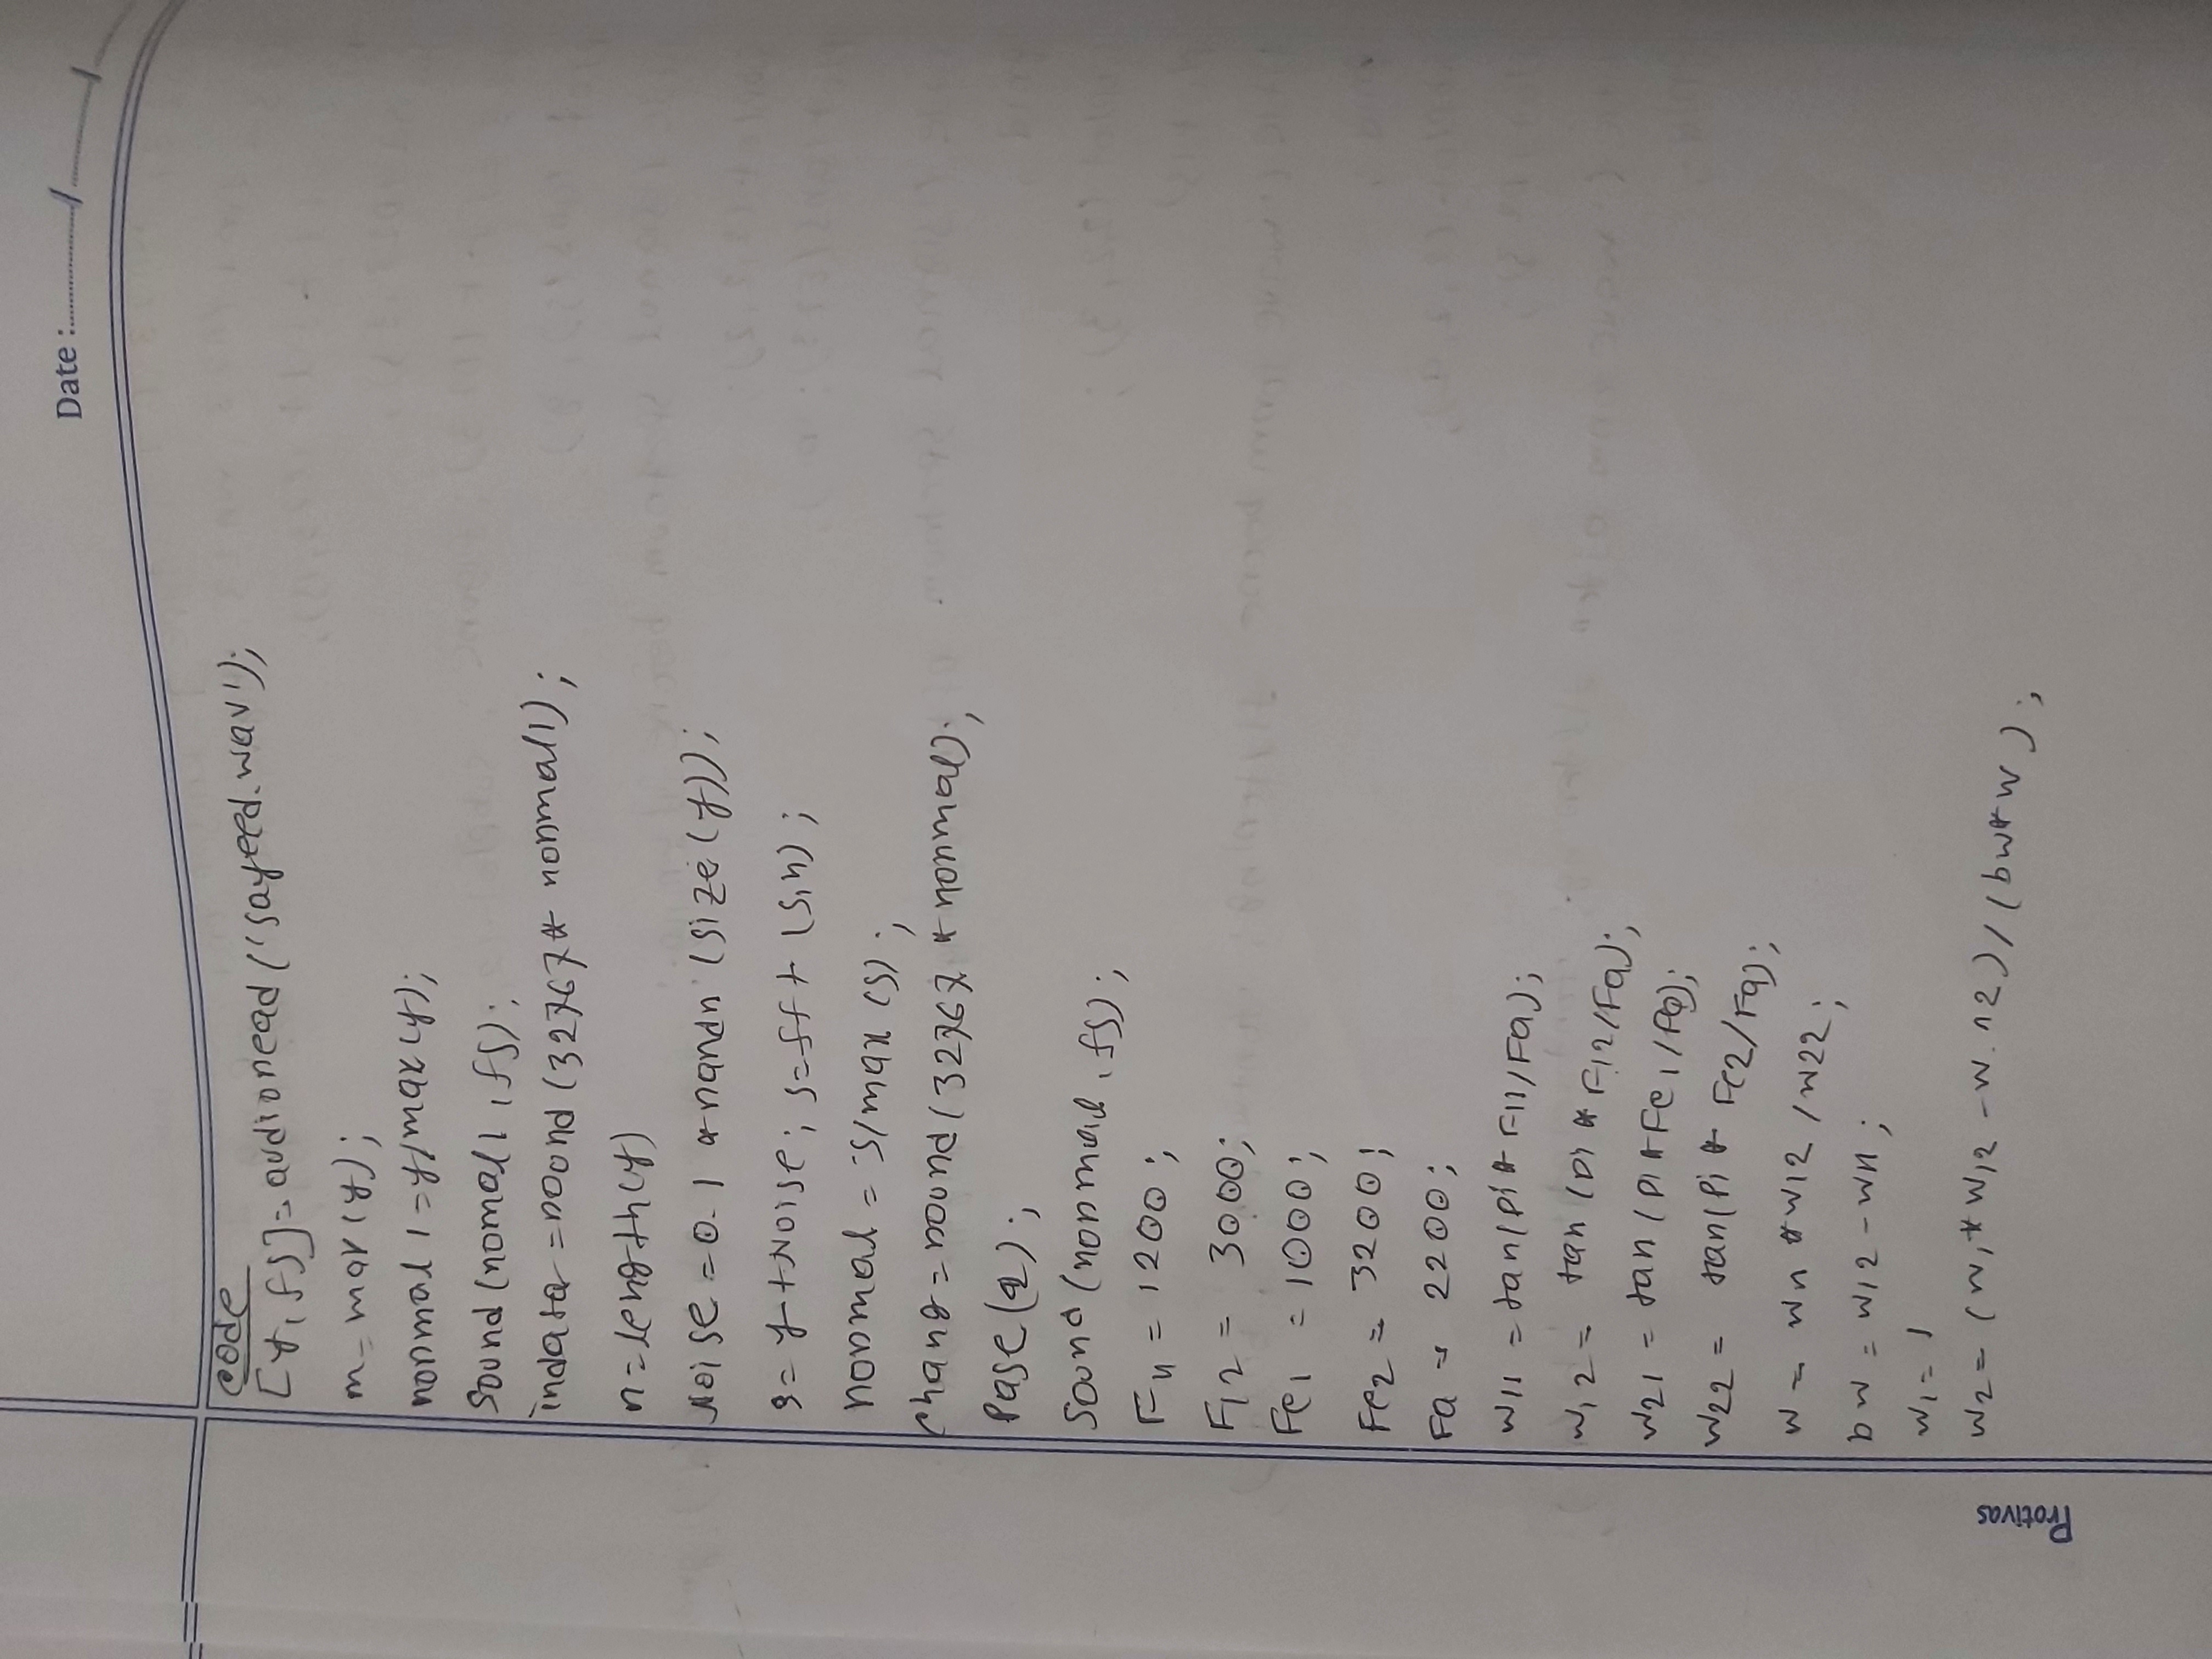 Date :............/............/
code
[y, fs]= audioread ('sayeed.wav');
m = max (y);
normal 1 = y/max(y);
sound (nomal1, fs);
indata = round (32767 * normal1);
n = length(y)
Noise = 0.1 * randn (size(y));
s = y + Noise; s = fft (s,n);
normal = s/max (s);
chang = round (32767 * normal);
Pase(2);
sound (normal, fs);
F11 = 1200;
F12 = 3000;
Fe1 = 1000;
Fe2 = 3200;
Fa = 2200;
w11 = tan(pi * F11/Fa);
w12 = tan (pi * F12/Fa);
w21 = tan (pi * Fe1/Fa);
w22 = tan(Pi * Fe2/Fa);
w = w11 * w12 / w22;
bw = w12 - w11;
w1 = 1
w2 = (w1 * w12 - w. 12) / (bw * w);
Protivas